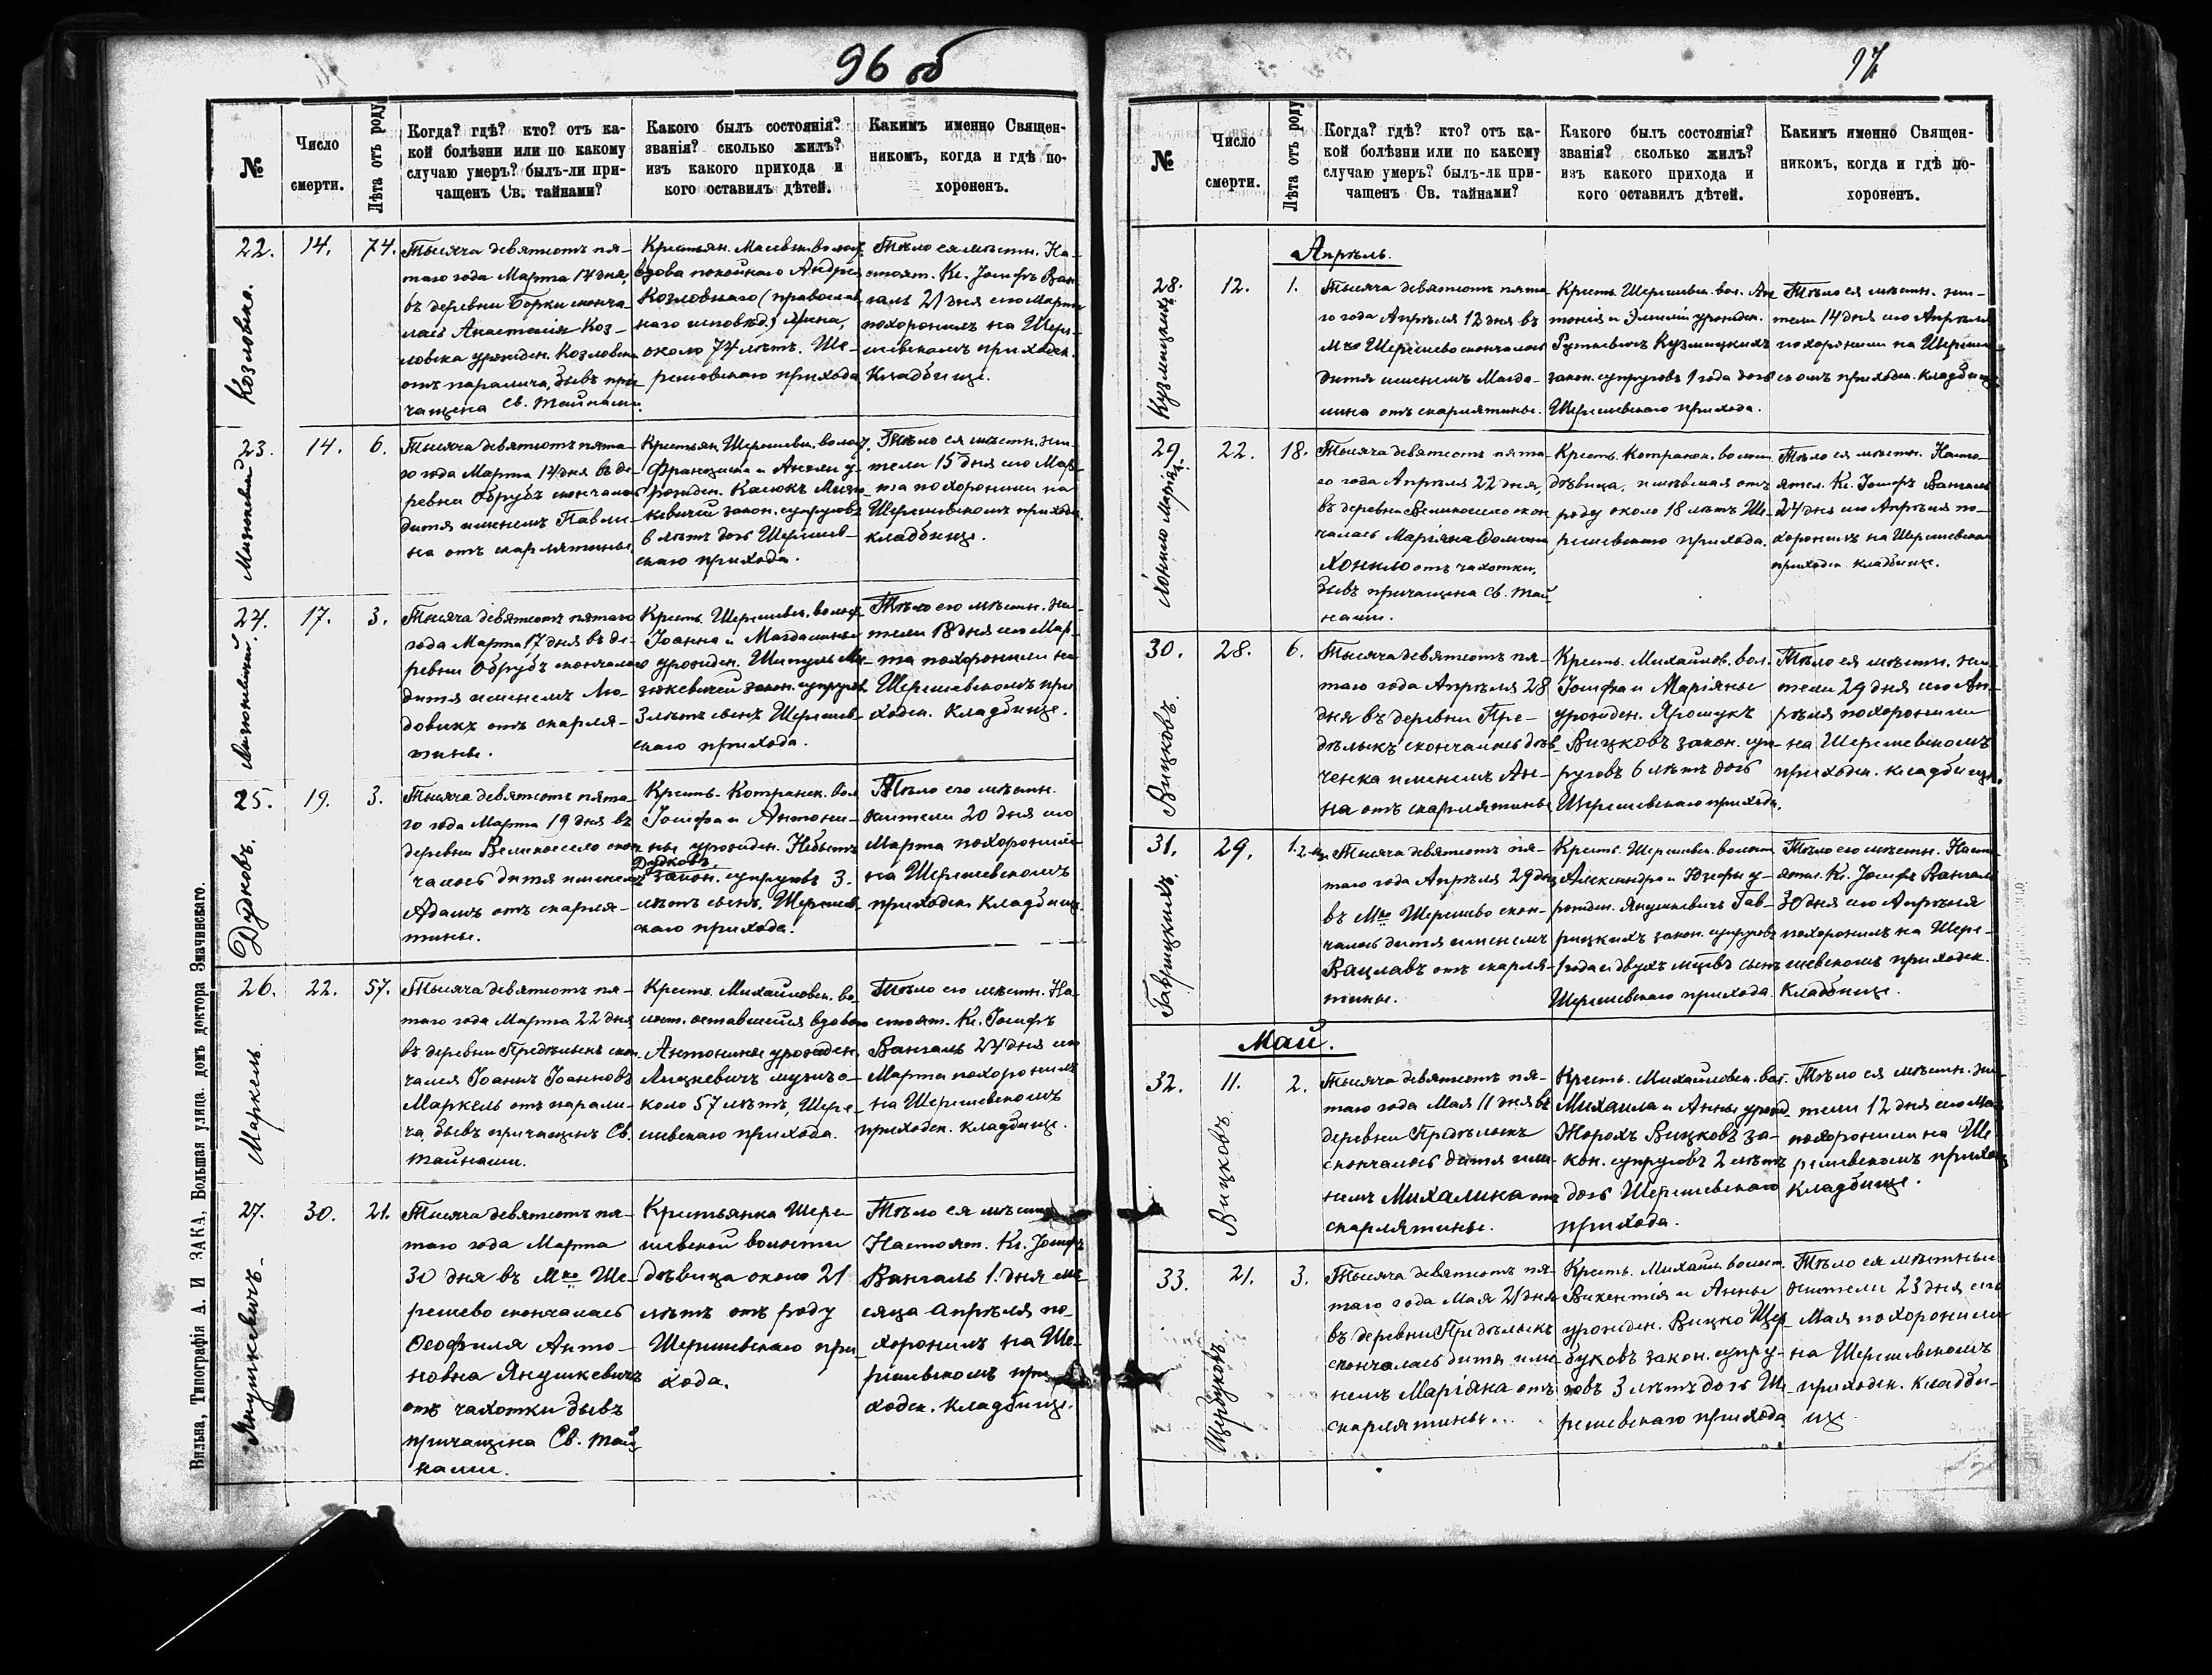 96 об
№
Число
смерти.
Лѣта отъ роду
Когда? гдѣ? кто? отъ ка-
кой болѣзни или по какому
случаю умеръ? былъ-ли при-
чащенъ Св. тайнами?
Какого былъ состоянія?
званія? сколько жилъ?
изъ какого прихода и
кого оставилъ дѣтей.
Какимъ именно Священ-
никомъ, когда и гдѣ по-
хороненъ.
22.
Козловска.
14.
74.
Тысяча девятьсотъ пя-
таго года Марта 14 дня,
въ деревни Борки сконча
лась Анастасія Коз-
ловска урожден. Козловска
отъ паралича, бывъ при-
чащена Св. тайнами.
Крестьян. Масевск. волост.
вдова покойнаго Андрея
Козловскаго (православ
наго исповѣд.)
около 74 лѣтъ. Ше-
решевскаго прихода
Тѣло ея мѣстн. На-
стоят. Кс. Іосифъ Ван
галъ 21 дня сего Марта
похоронилъ на Шере-
шевскомъ приходск.
кладбищѣ.
23.
Мизюкевичъ
14.
6.
Тысяча девятьсотъ пята-
го года Марта 14 дня въ де-
ревни Обрубъ скончалось
дитя именемъ Павли-
на отъ скарлятины
Крестьян. Шерешевск. волост.
Францишка и Анели у-
рожден. Калюкъ Мизю-
кевичей закон. супруговъ
6 лѣтъ дочь Шерешев-
скаго прихода.
Тѣло ея мѣстн. жи-
тели 15 дня сего Мар-
та похоронили на
Шерешевскомъ приход.
кладбищѣ.
24.
Мизюкевичъ.
17.
3.
Тысяча девятьсотъ пятаго
года Марта 17 дня въ де-
ревни Обрубъ скончалось
дитя именемъ Лю-
довикъ отъ скарля-
тины.
Крестьян. Шерешевск. волост.
Іоанна и Магдалины
урожден. Шипуль Ми-
зюкевичей закон. супругов.
3 лѣтъ сынъ Шерешев-
скаго прихода.
Тѣло его мѣстн. жи-
тели 18 дня сего Мар-
та похоронили на
Шерешевскомъ при
ходск. кладбищѣ.
25.
Дудковъ.
19.
3.
Тысяча девятьсотъ пята-
го года Марта 19 дня въ
деревни Великосело скон-
чалось дитя именемъ
Адамъ отъ скарля-
тины.
Крестьян. Котранск. вол.
Іосифа и Антони-
ны урожден. Небытъ
Дудковъ.
закон. супруговъ 3.
лѣтъ сынъ. Шерешев-
скаго прихода.
Тѣло его мѣстн.
жители 20 дня сего
Марта похоронили
на Шерешевскомъ
приходск. кладбищѣ
26.
Маркель.
22.
57.
Тысяча девятьсотъ пя-
таго года Марта 22 дня
въ деревни Предѣльскъ скон-
чался Іоаннъ Іоанновъ
Маркель отъ парали-
ча, бывъ причащенъ Св.
тайнами.
Крестьян. Михайловск. во-
лост. оставшейся вдовою
Антонины урожден.
Лицкевичъ мужъ о-
коло 57 лѣтъ, Шере-
шевскаго прихода.
Тѣло его мѣстн. На-
стоят. Кс. Іосифъ
Вангалъ 24 дня сего
Марта похоронилъ
на Шерешевскомъ
приходск. кладбищѣ.
27.
Янушкевичъ.
30.
21.
Тысяча девятьсотъ пя-
таго года Марта
30 дня въ Мко Ше-
решево скончалась
Ѳеофиля Анто-
новна Янушкевичъ
отъ чахотки бывъ
причащена Св. тай
нами.
Крестьянка Шере
шевской волости
дѣвица около 21
лѣтъ отъ роду
Шерешевскаго при
хода.
Тѣло ея мѣстн.
Настоят. Кс. Іосифъ
Вангалъ 1 дня мѣ
сяца апрѣля по-
хоронилъ на Ше-
решевскомъ при
ходск. кладбищѣ.
Вильна, Типографія А. И ЗАКА, Большая улица. домъ доктора Змачинскаго.
97
№
Число
смерти.
Лѣта отъ роду
Когда? гдѣ? кто? отъ ка-
кой болѣзни или по какому
случаю умеръ? былъ-ли при-
чащенъ Св. тайнами?
Какого былъ состоянія?
званія? сколько жилъ?
изъ какого прихода и
кого оставилъ дѣтей.
Какимъ именно Священ-
никомъ, когда и гдѣ по-
хороненъ.
Апрѣль.
28.
Кузмицкихъ
12.
1.
Тысяча девятьсотъ пята
го года Апрѣля 12 дня въ
Мко Шерешево скончалось
дитя именемъ Магда-
лина отъ скарлятины.
Крестьян. Шерешевск. вол. Ан
тонія и Эмиліи урожден.
Гуткевичъ Кузмицкихъ
закон. супруговъ 1 года дочь
Шерешевскаго прихода.
Тѣло ея мѣстн. жи-
тели 14 дня сего Апрѣля
похоронили на Шерешев-
скомъ приходск. кладбищѣ
29.
22.
18.
Тысяча девятьсотъ пята
го года Апрѣля 22 дня,
въ деревни Великосело скон
чалась Маріяна
Хонько отъ чахотки,
бывъ причащена Св. тай
нами.
Крестьян. Котранск. волости
дѣвица, имѣвшая отъ
роду около 18 лѣтъ Ше-
решевскаго прихода.
Тѣло ея мѣстн. Насто-
ятел. Кс. Іосифъ Вангалъ
24 дня сего Апрѣля по-
хоронилъ на Шерешевском
приходск. кладбищѣ.
30.
Вицковъ.
28.
6.
Тысяча девятьсотъ пя-
таго года Апрѣля 28
дня въ деревни Пре-
дѣльскъ скончалась дѣв-
ченка именемъ Ан-
на отъ скарлятины
Крестьян. Михайлов. вол.
Іосифа и Маріяны
урожден. Ярошукъ
Вицковъ закон. суп-
руговъ 6 лѣтъ дочь
Шерешевскаго прихода.
Тѣло ея мѣстн. жи-
тели 29 дня сего Ап-
рѣля похоронили
на Шерешевскомъ
приходск. кладбищѣ.
31.
Гаврицкихъ.
29.
1. 2. мц.
Тысяча девятьсотъ пя-
таго года Апрѣля 29 дня
въ Мко Шерешево скон-
чалось дитя именемъ
Вацлавъ отъ скарля-
тины.
Крестьян. Шерешевск. волости
Александра и Юзефы у-
рожден. Янушкевичъ Гав-
рицкихъ закон. супруговъ
1 года и двухъ мцевъ сынъ
Шерешевскаго прихода.
Тѣло его мѣстн. Насто-
ятел. Кс. Іосифъ Вангалъ
30 дня сего Апрѣля
похоронилъ на Шере-
шевскомъ приходск.
кладбищѣ.
Май.
32.
Вицковъ
11.
2.
Тысяча девятьсотъ пя-
таго года Мая 11 дня въ
деревни Предѣльскъ
скончалось дитя име-
немъ Михалина отъ
скарлятины.
Крестьян. Михайловск. вол.
Михаила и Анны урожд.
Жорохъ Вицковъ за-
кон. супруговъ 2 лѣтъ
дочь Шерешевскаго
прихода.
Тѣло ея мѣстн. жи-
тели 12 дня сего Мая
похоронили на Ше
решевскомъ приход
кладбищѣ.
33.
Щербуковъ.
21.
3.
Тысяча девятьсотъ пя-
таго года Мая 21 дня
въ деревни Предѣльскъ
скончалась дитя име
немъ Маріяна отъ
скарлятины.
Крестьян. Михайл. волост.
Викентія и Анны
урожден. Вицко Щер-
буковъ закон. супру-
говъ 3 лѣтъ дочь Ше-
решевскаго прихода
Тѣло ея мѣстные
жители 23 дня сего
Мая похоронили
на Шерешевскомъ
приходск. кладби-
щѣ